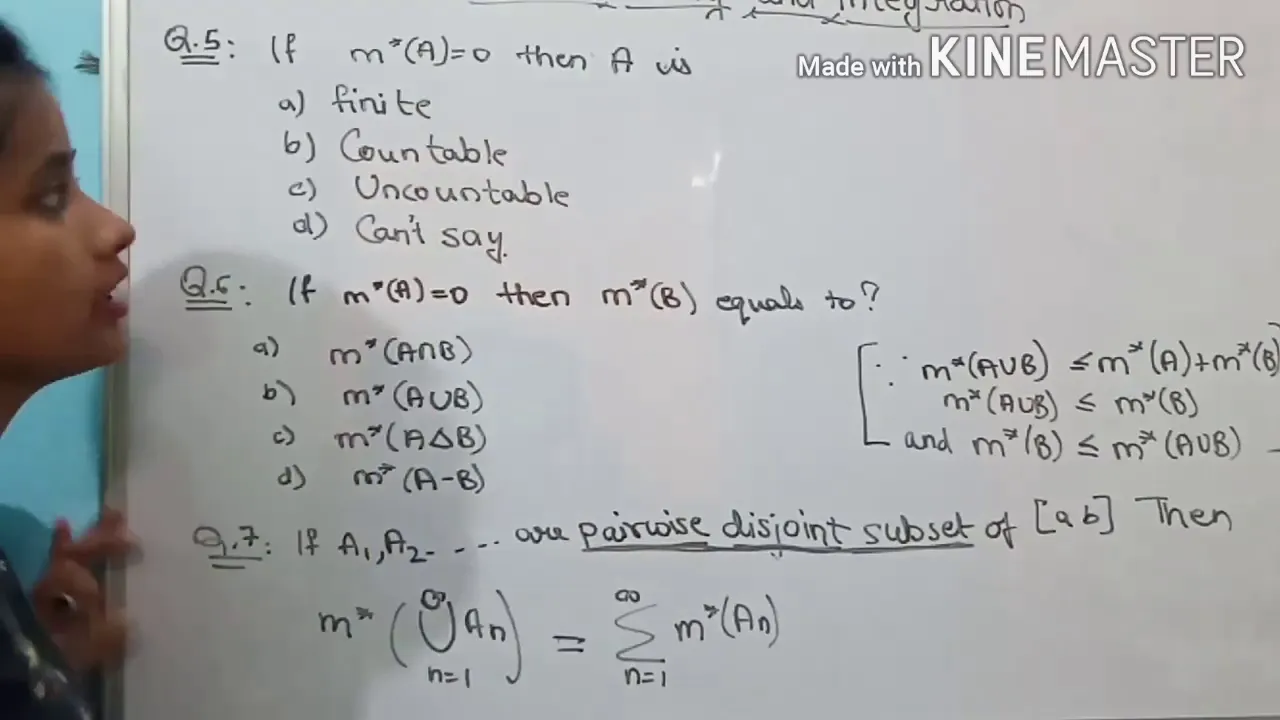 and Integration
Made with KINEMASTER
Q.5: If m*(A)=0 then A is
a) finite
b) Countable
c) Uncountable
d) Can't say.
Q.6: If m*(A)=0 then m*(B) equals to?
a) m*(A∩B)
b) m*(A∪B)
c) m*(A∆B)
d) m*(A-B)
[∵ m*(A∪B) ≤ m*(A)+m*(B)
m*(A∪B) ≤ m*(B)
and m*(B) ≤ m*(A∪B)
Q.7: If A₁, A₂- - ... are pairwise disjoint subset of [a b] Then
m* (∞⋃n=1 An) = ∞∑n=1 m*(An)